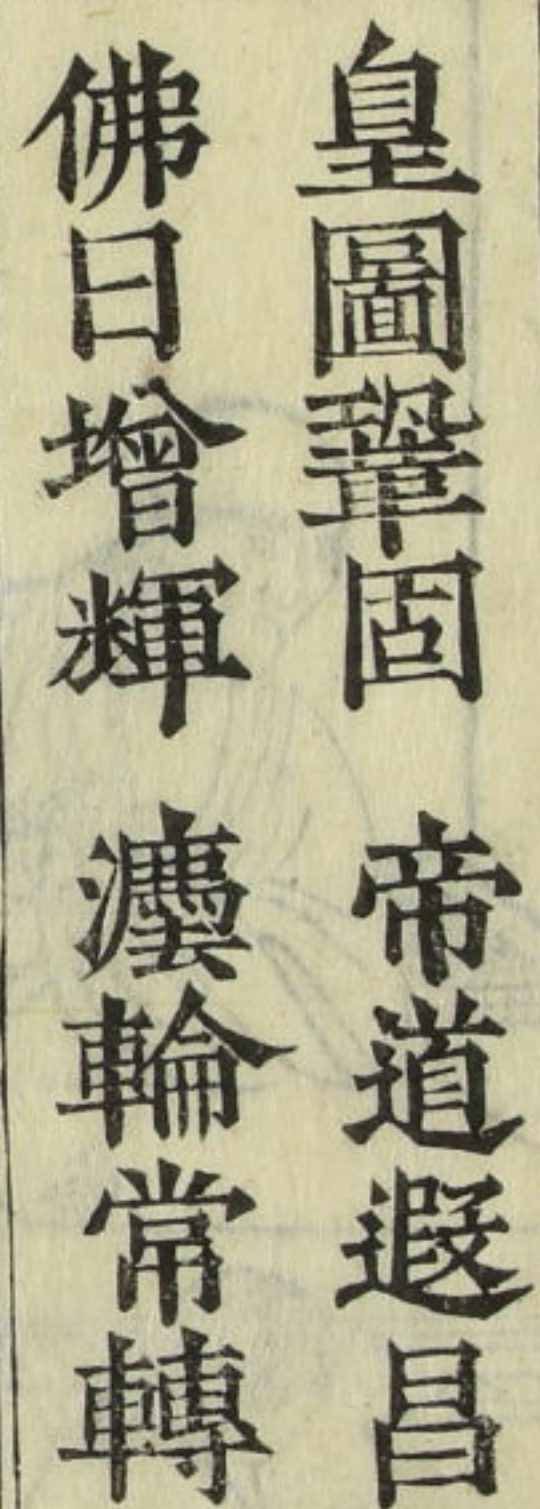 皇圖鞏固　帝道遐昌
佛日增輝　灋輪常轉